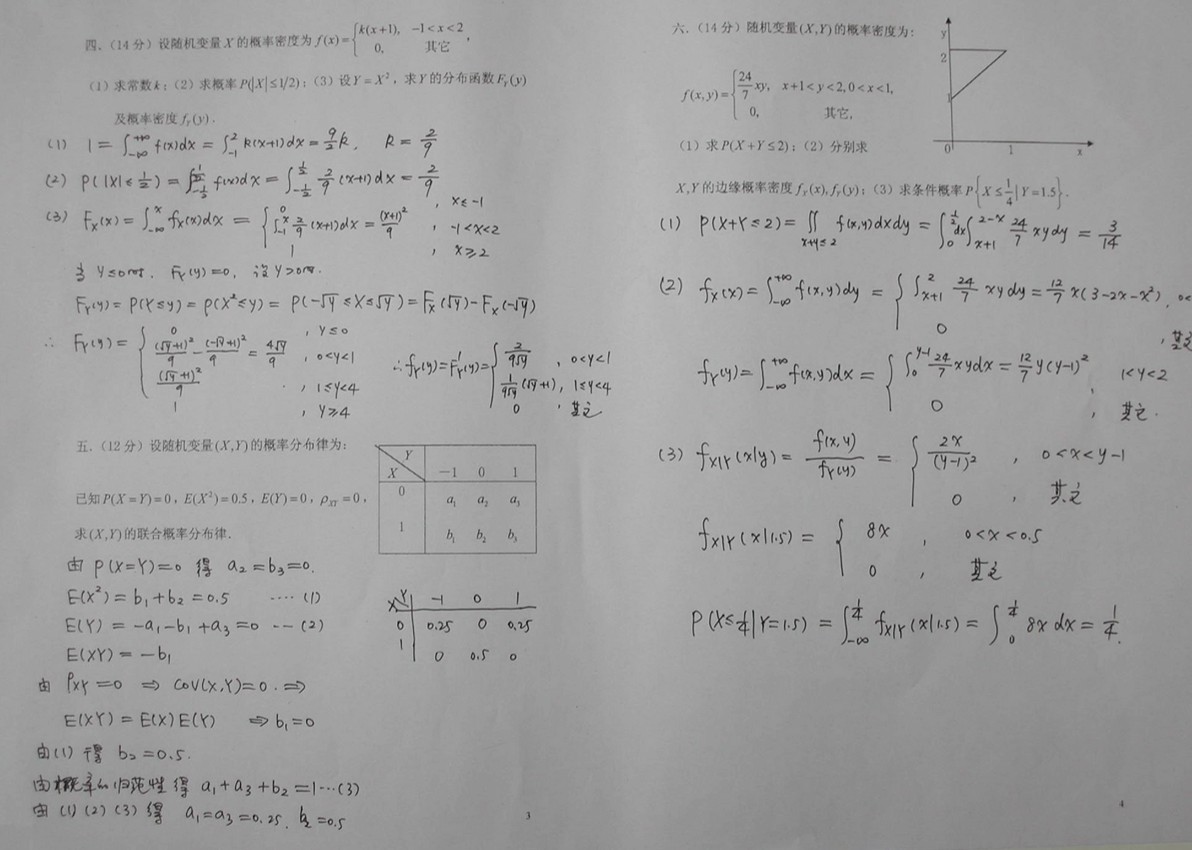 四.（14分）设随机变量X的概率密度为f(x)={k(x+1), -1<x<2
0, 其它 ,
（1）求常数k；（2）求概率P(|X|≤1/2)；（3）设Y=X²，求Y的分布函数F_Y(y)
及概率密度f_Y(y).
(1) 1=∫_{-∞}^{+∞} f(x)dx=∫_{-1}^{2} k(x+1)dx=9/2 k, k=2/9
(2) P(|X|≤1/2)=∫_{-1/2}^{1/2} f(x)dx=∫_{-1/2}^{1/2} 2/9 (x+1)dx=2/9
(3) F_X(x)=∫_{-∞}^{x} f_X(x)dx={0 , x≤-1
∫_{-1}^{x} 2/9 (x+1)dx=(x+1)²/9 , -1<x<2
1 , x≥2
当 y≤0时, F_Y(y)=0, 设 y>0时.
F_Y(y)=P(Y≤y)=P(X²≤y)=P(-√y≤X≤√y)=F_X(√y)-F_X(-√y)
∴ F_Y(y)={0 , y≤0
(√y+1)²/9-(-√y+1)²/9=4√y/9 , 0<y<1
(√y+1)²/9 , 1≤y<4
1 , y≥4
∴f_Y(y)=F'_Y(y)={2/(9√y) , 0<y<1
1/(9√y) (√y+1), 1≤y<4
0 , 其它
五.（12分）设随机变量(X,Y)的概率分布律为：
Y
X -1 0 1
0 a₁ a₂ a₃
1 b₁ b₂ b₃
已知P(X=Y)=0，E(X²)=0.5，E(Y)=0，ρ_XY=0，
求(X,Y)的联合概率分布律.
由 P(X=Y)=0 得 a₂=b₃=0.
E(X²)=b₁+b₂=0.5 ····(1)
E(Y)=-a₁-b₁+a₃=0 --(2)
E(XY)=-b₁
由 ρ_XY=0 ⇒ COV(X,Y)=0. ⇒
E(XY)=E(X)E(Y) ⇒ b₁=0
由(1) 得 b₂=0.5.
由概率的归范性得 a₁+a₃+b₂=1···(3)
由 (1)(2)(3) 得 a₁=a₃=0.25, b₂=0.5
X Y -1 0 1
0 0.25 0 0.25
1 0 0.5 0
3
六.（14分）随机变量(X,Y)的概率密度为：
f(x,y)={24/7 xy, x+1<y<2,0<x<1,
0, 其它,
y
2
1
0 1 x
（1）求P(X+Y≤2)；（2）分别求
X,Y的边缘概率密度f_X(x),f_Y(y)；（3）求条件概率P{X≤1/4|Y=1.5}.
(1) P(X+Y≤2)=∬_{x+y≤2} f(x,y)dxdy=∫_{0}^{1/2}dx∫_{x+1}^{2-x} 24/7 xydy=3/14
(2) f_X(x)=∫_{-∞}^{+∞} f(x,y)dy={∫_{x+1}^{2} 24/7 xydy=12/7 x(3-2x-x²), 0<
0 , 其
f_Y(y)=∫_{-∞}^{+∞} f(x,y)dx={∫_{0}^{y-1} 24/7 xydx=12/7 y(y-1)², 1<y<2
0 , 其它.
(3) f_{X|Y}(x|y)=f(x,y)/f_Y(y)={2x/(y-1)² , 0<x<y-1
0 , 其它
f_{X|Y}(x|1.5)={8x , 0<x<0.5
0 , 其它
P(X≤1/4|Y=1.5)=∫_{-∞}^{1/4} f_{X|Y}(x|1.5)=∫_{0}^{1/4} 8xdx=1/4.
4